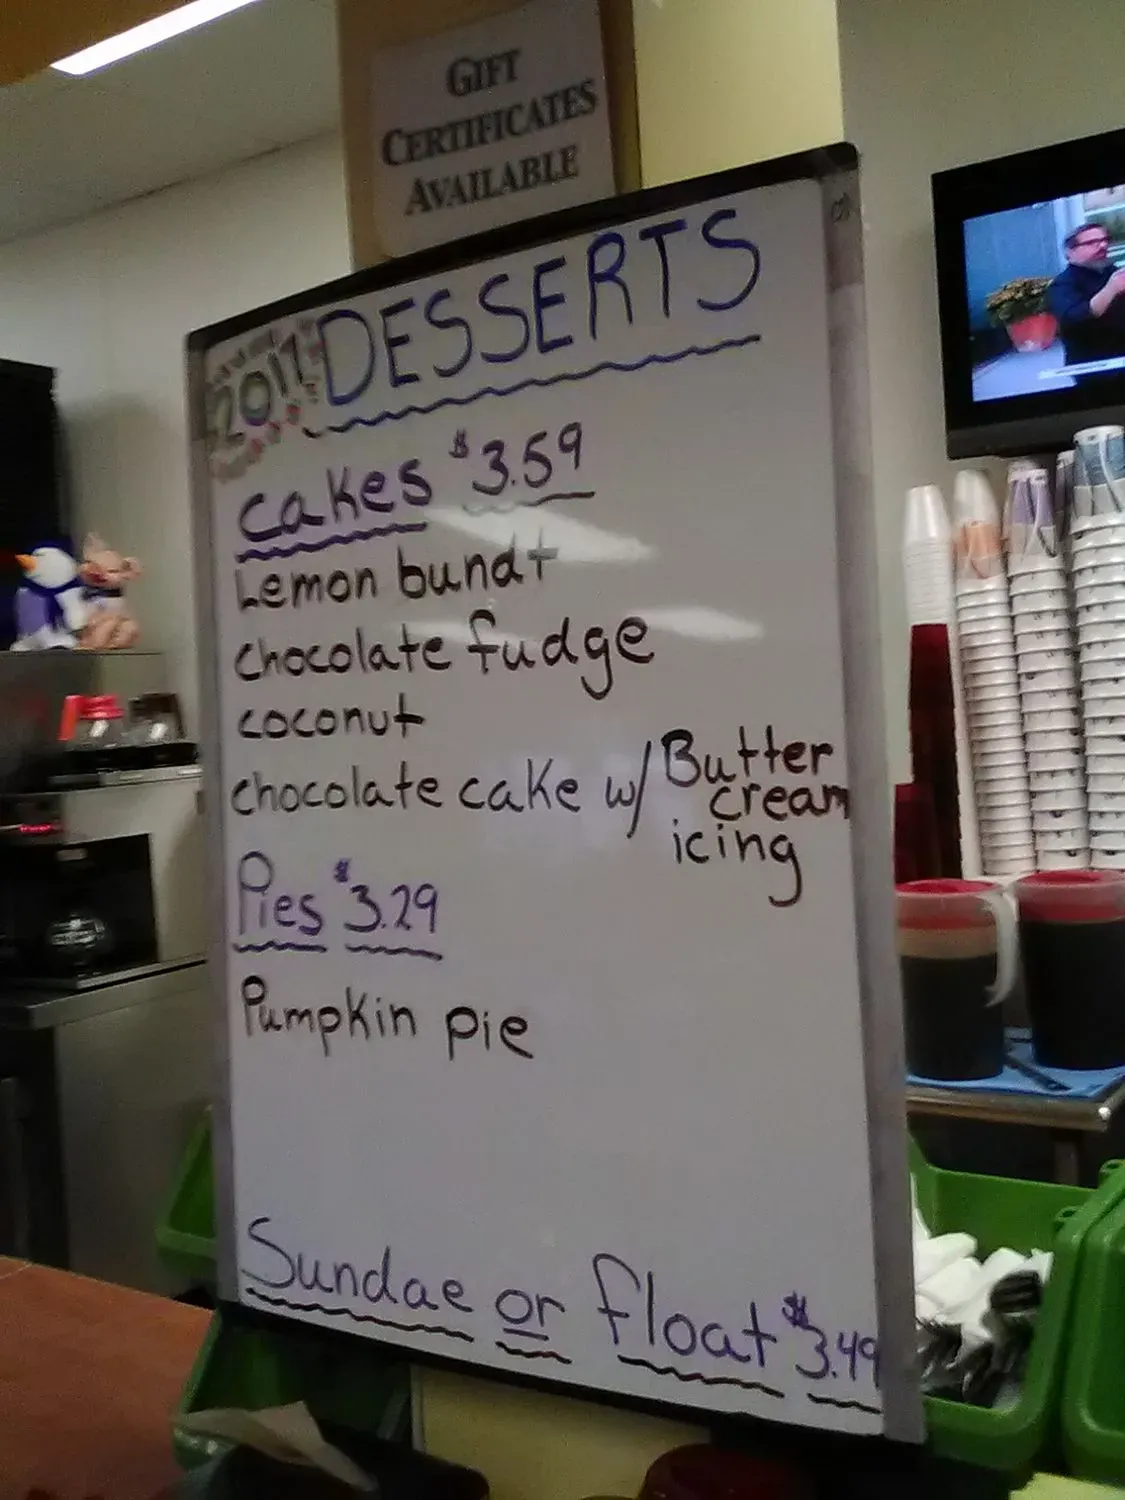 GIFT
CERTIFICATES
AVAILABLE
2017 DESSERTS
cakes $3.59
Lemon bundt
chocolate fudge
coconut
chocolate cake w/ Butter
cream
icing
Pies $3.29
Pumpkin pie
Sundae or float $3.49